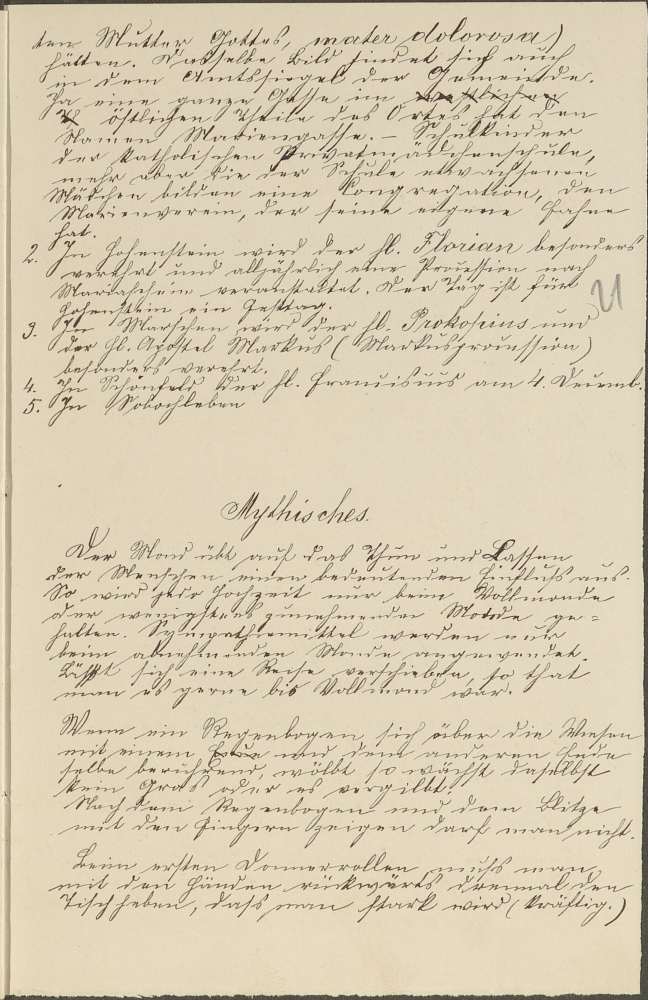 ten Mutter Gottes, mater dolorosa)
hätten. Dasselbe Bild findet sich auch
in dem Amtssiegel der Gemeinde.
Ja eine ganze Gasse im westlichen
östlichen Theile des Ortes hat den
Namen Mariengasse. – Schulkinder
der katholischen Privatmädchenschule,
mehr aber die der Schule entwachsenen
Mädchen bilden eine Congregation, den
Marienverein, der seine eigene Fahne
hat.
2. In Hohenstein wird der hl. Florian besonders
verehrt und alljährlich eine Procession nach
Mariaschein veranstaltet. Der Tag ist für
Hohenstein ein Festtag.
21
3. In Marschen wird der hl. Prokopius und
der hl. Apostel Markus (Markusprocession)
besonders verehrt.
4. In Schönfeld der hl. Franciscus am 4. Decemb.
5. In Sobochleben
Mythisches.
Der Mond übt auf das Thun und Lassen
der Menschen einen bedeutenden Einfluss aus.
So wird jede Hochzeit nur beim Vollmonde
oder wenigstens zunehmenden Monde ge-
halten. Sympathiemittel werden nur
beim abnehmenden Monde angewendet.
Lässt sich eine Reise verschieben, so that
man es gerne bis Vollmond war.
Wenn ein Regenbogen sich über die Wiesen
mit einem Ende und dem anderen Ende
selbe berührend, wölbt so wächst daselbst
kein Gras oder es vergilbt.
Nach dem Regenbogen und dem Blitze
mit den Fingern zeigen darf man nicht.
Beim ersten Donnerrollen muss man
mit den Händen rückwärts dreimal den
Tisch heben, dass man stark wird (kräftig.)